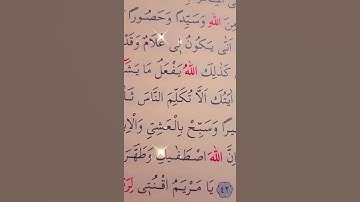 مِنَ اللّٰهِ وَسَيِّدًا وَحَصُورًا
اَنّٰى يَكُونُ ل۪ي غُلَامٌ وَقَدْ
كَذٰلِكَ اللّٰهُ يَفْعَلُ مَا يَشَٓا
اٰيَتُكَ اَلَّا تُكَلِّمَ النَّاسَ
وَسَبِّحْ بِالْعَشِيِّ وَالْاِ
اِنَّ اللّٰهَ اصْطَفٰيكِ وَطَهَّرَ
﴿٤٢﴾ يَا مَرْيَمُ اقْنُت۪ي لِرَ